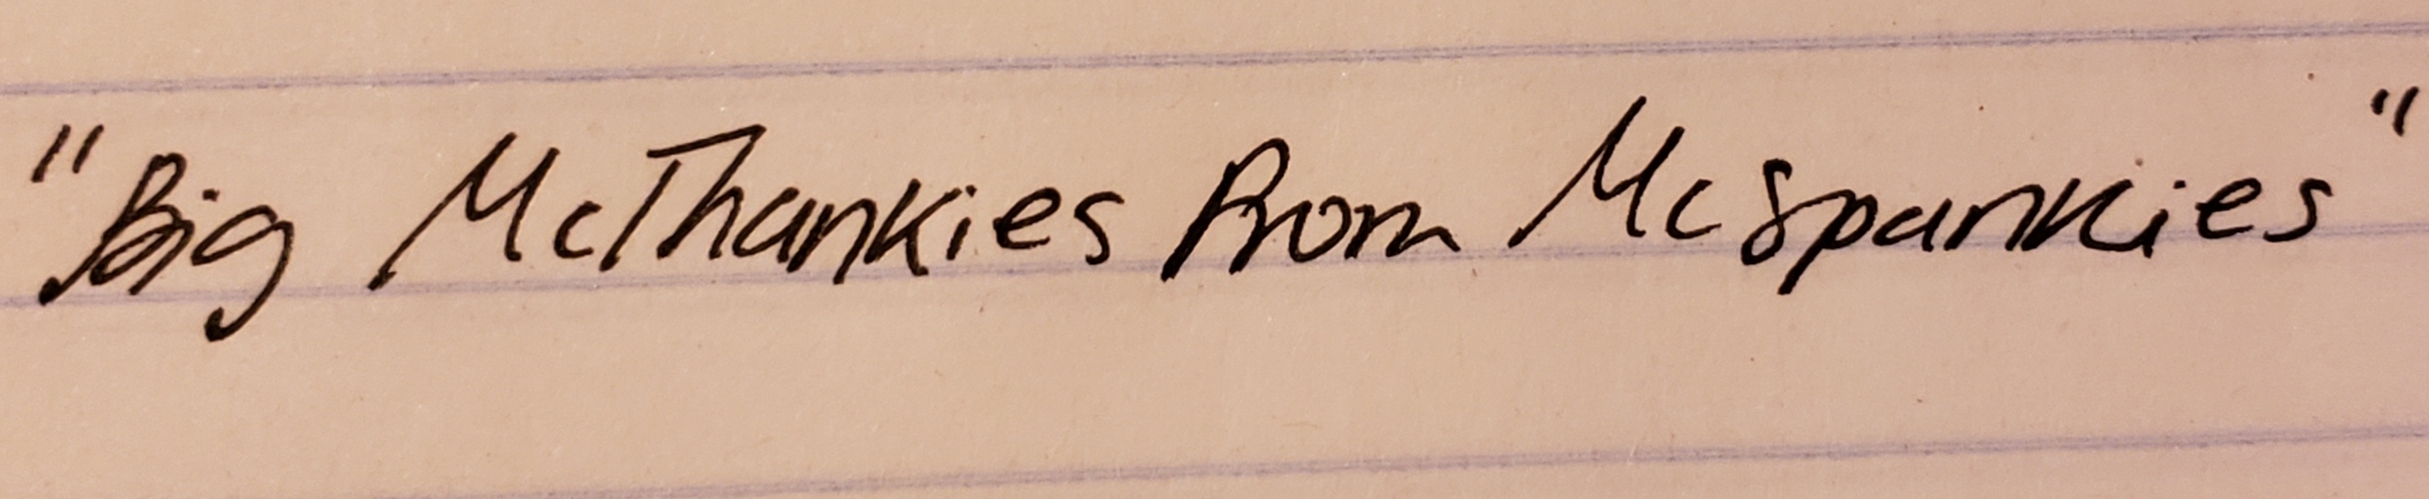 "Big McThankies from McSpankies"